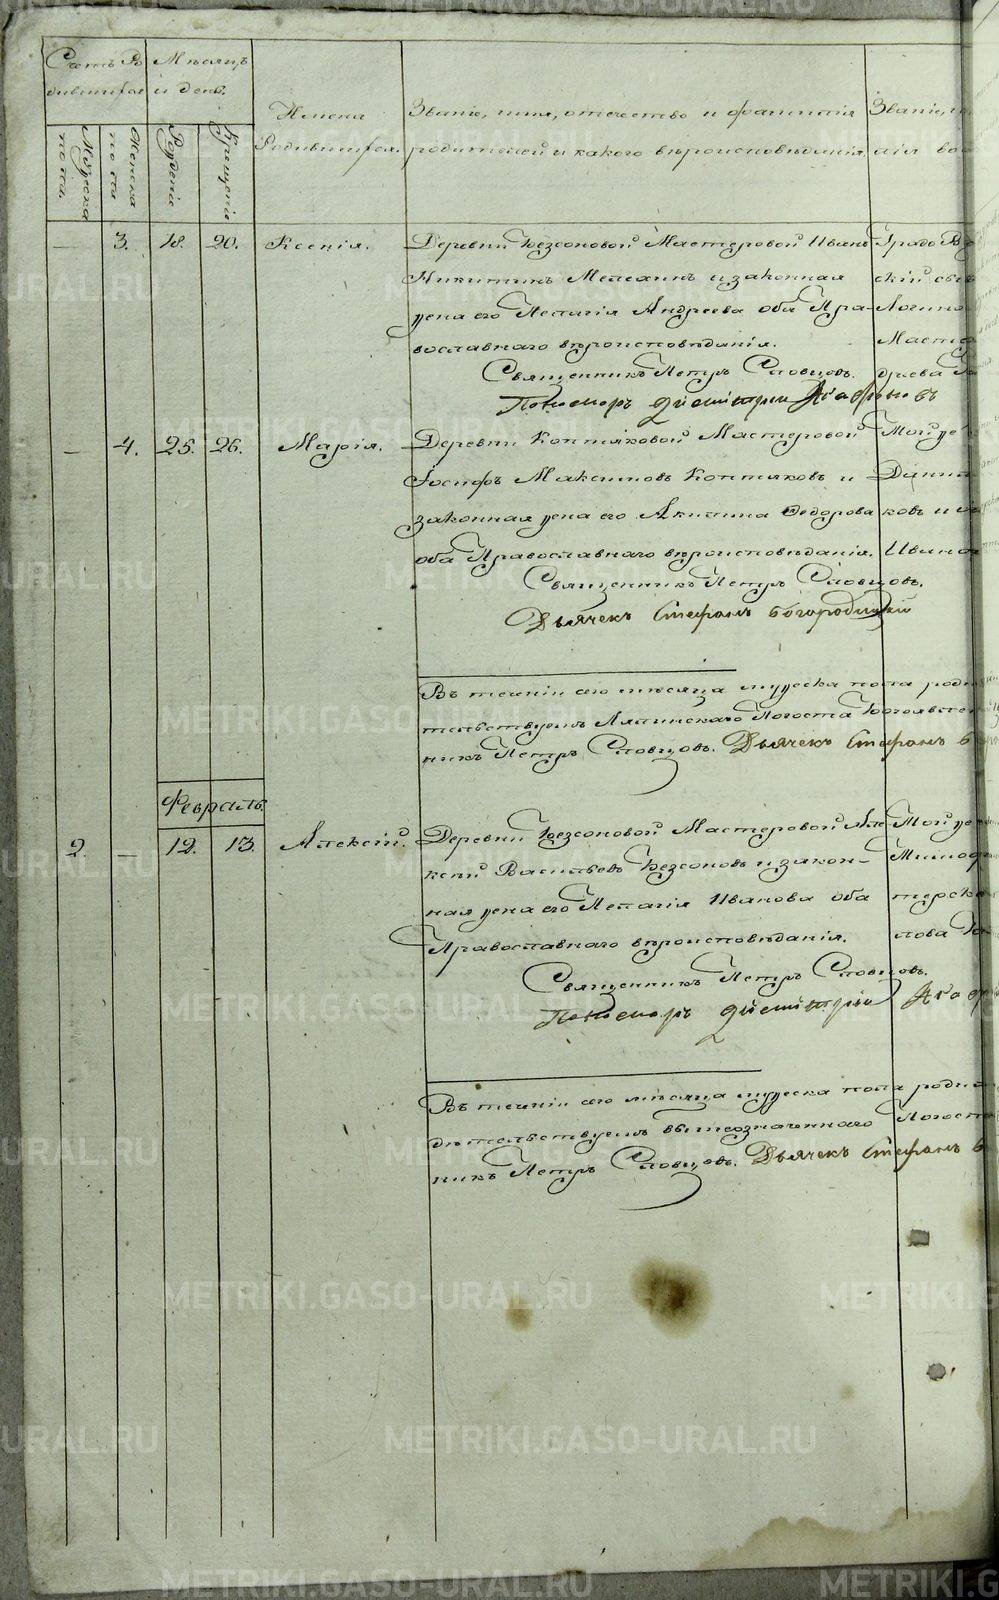 Счетъ Ро
дившихся
Мѣсяцъ
и день.
Имена
Родившихся.
Званіе, имя, отечество и фамилія
родителей и какого вѣроисповѣданія.
Званіе,
Мужеска
пола.
Женска
пола
Рожденія
Крещенія
— 3. 18. 20. Ксенія.
Деревни Безсоновой Мастеровой Иванъ
Никитинъ и законная
жена его Пелагія Андреева оба Пра-
вославнаго вѣроисповѣданія.
Священникъ Петръ Словцовъ.
Пономарь Димитрий
Градо
скій
Мастер
дреева
— 4. 25. 26. Марія.
Деревни Коптяковой Мастеровой
Іосифъ Максимовъ Коптяковъ и
законная жена его Акилина Федорова
оба Православнаго вѣроисповѣданія.
Священникъ Петръ Словцовъ.
Дьячекъ Стефанъ Богородицкій
Той же
Данил
ковъ и
Иванов
Въ теченіи сего мѣсяца мужеска пола роди
тельствуемъ Лялинскаго Погоста Богоявлен
никъ Петръ Словцовъ. Дьячекъ Стефанъ Б
Февраль.
2. — 12. 13. Алексій.
Деревни Безсоновой Мастеровой Але
ксѣй Васильевъ Безсоновъ и закон-
ная жена его Пелагія Иванова оба
Православнаго вѣроисповѣданія.
Священникъ Петръ Словцовъ.
Пономарь Димитрий
Той же
Тимоф
терск
лова
Въ теченіи сего мѣсяца мужеска пола роди
дѣтельствуемъ вышеозначеннаго Погоста
никъ Петръ Словцовъ. Дьячекъ Стефанъ Б
METRIKI.GASO-URAL.RU